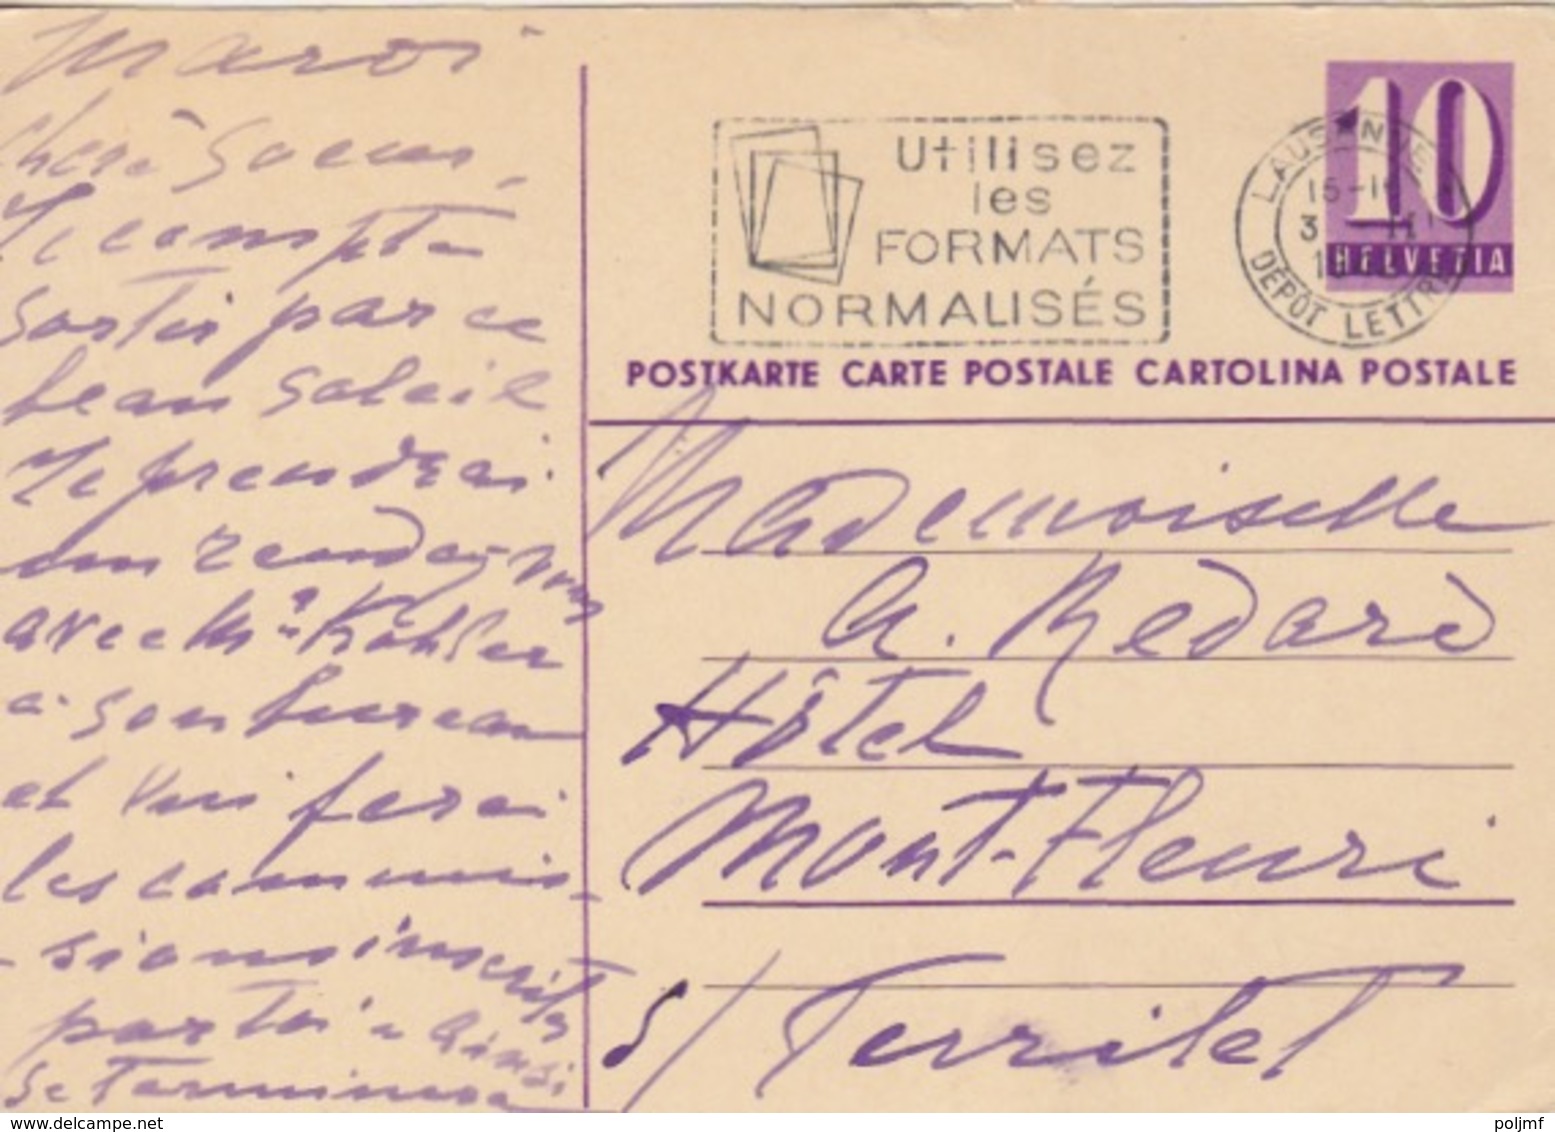 Mardi
Chère Soeur,
Je compte
sortir par ce
beau soleil
Je prendrai
un rendez-vous
avec Mr Köhler
à son bureau
et lui ferai
les commis-
-sions inscrites
par toi Ainsi
se terminera
Utilisez
les
FORMATS
NORMALISÉS
LAUSANNE
15-1
3 II
DÉPÔT LETTRE
10
HELVETIA
POSTKARTE CARTE POSTALE CARTOLINA POSTALE
Mademoiselle
A. Redard
Hôtel
Mont-Fleuri
s/ Territet
www.delcampe.net
poljmf